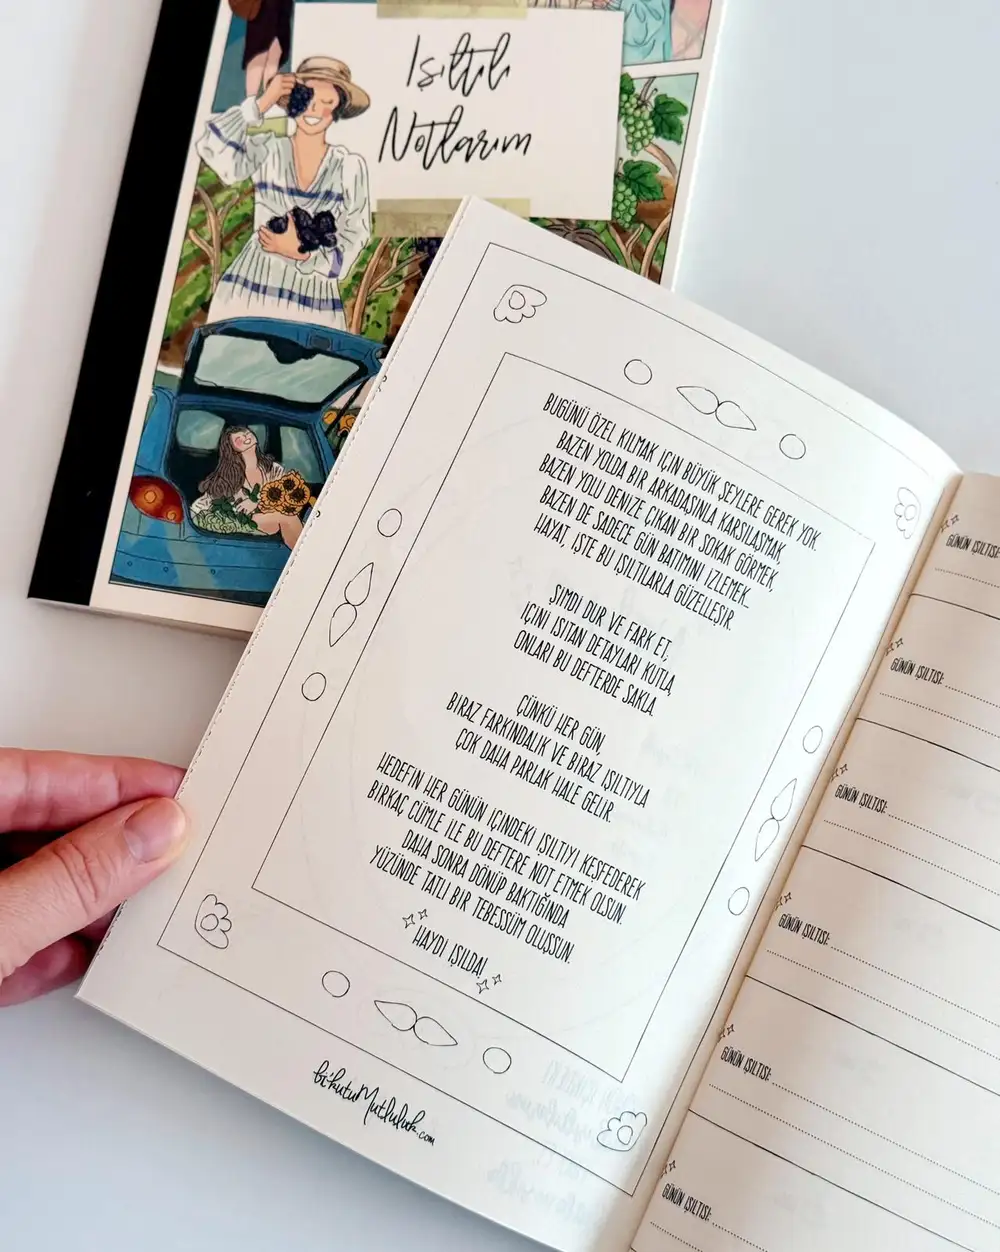 Işıltılı
Notlarım
BUGÜNÜ ÖZEL KILMAK İÇİN BÜYÜK ŞEYLERE GEREK YOK.
BAZEN YOLDA BİR ARKADAŞINLA KARŞILAŞMAK,
BAZEN YOLU DENİZE ÇIKAN BİR SOKAK GÖRMEK,
BAZEN DE SADECE GÜN BATIMINI İZLEMEK...
HAYAT, İŞTE BU IŞILTILARLA GÜZELLEŞİR.
ŞİMDİ DUR VE FARK ET,
İÇİNİ ISITAN DETAYLARI KUTLA,
ONLARI BU DEFTERDE SAKLA.
ÇÜNKÜ HER GÜN,
BİRAZ FARKINDALIK VE BİRAZ IŞILTIYLA
ÇOK DAHA PARLAK HALE GELİR.
HEDEFİN HER GÜNÜN İÇİNDEKİ IŞILTIYI KEŞFEDEREK
BİRKAÇ CÜMLE İLE BU DEFTERE NOT ETMEK OLSUN.
DAHA SONRA DÖNÜP BAKTIĞINDA
YÜZÜNDE TATLI BİR TEBESSÜM OLUŞSUN.
HAYDİ IŞILDA!
bi'kutuMutluluk.com
GÜNÜN IŞILTISI:
GÜNÜN IŞILTISI:
GÜNÜN IŞILTISI:
GÜNÜN IŞILTISI:
GÜNÜN IŞILTISI:
GÜNÜN IŞILTISI: